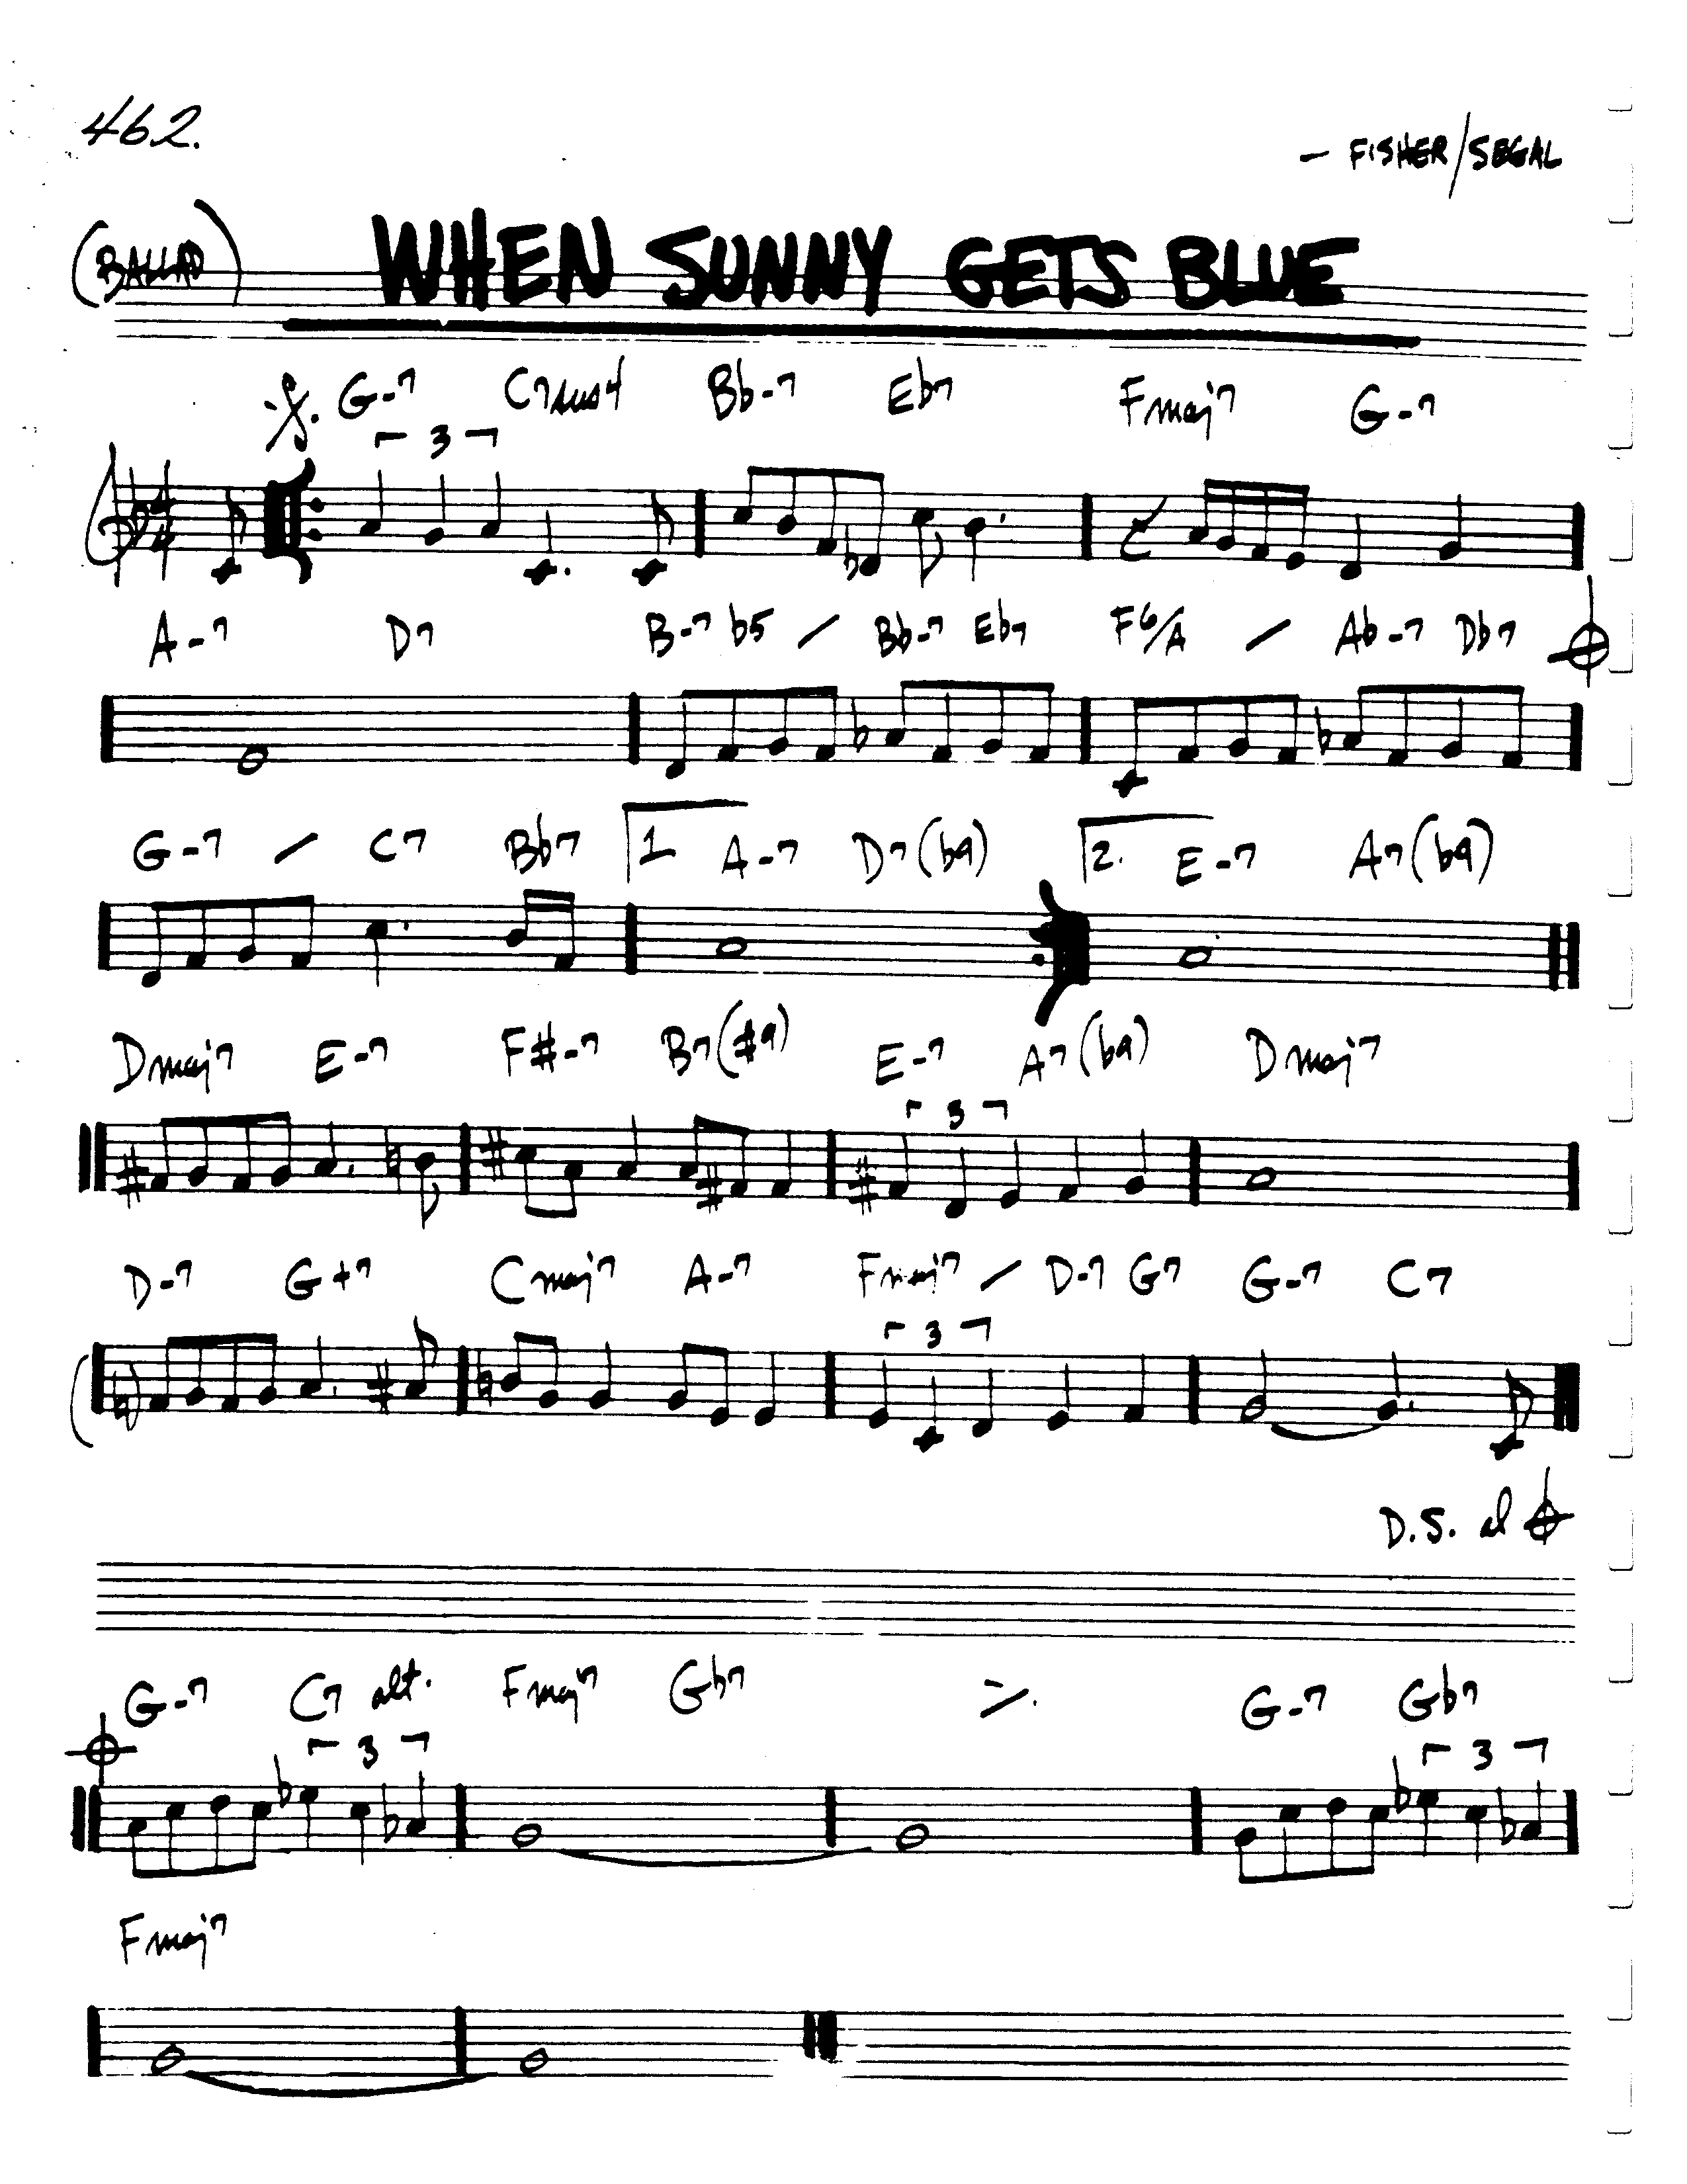 462.
- FISHER/SEGAL
(BALLAD) WHEN SUNNY GETS BLUE
G-7 C7sus4 Bb-7 Eb7 Fmaj7 G-7
3
A-7 D7 B-7 b5 / Bb-7 Eb7 F6/A / Ab-7 Db7
G-7 / C7 Bb7 1. A-7 D7(b9) 2. E-7 A7(b9)
Dmaj7 E-7 F#-7 B7(#9) E-7 A7(b9) Dmaj7
3
D-7 G+7 Cmaj7 A-7 Fmaj7 / D-7 G7 G-7 C7
3
D.S. al
G-7 C7 alt. Fmaj7 Gb7 G-7 Gb7
3 3
Fmaj7